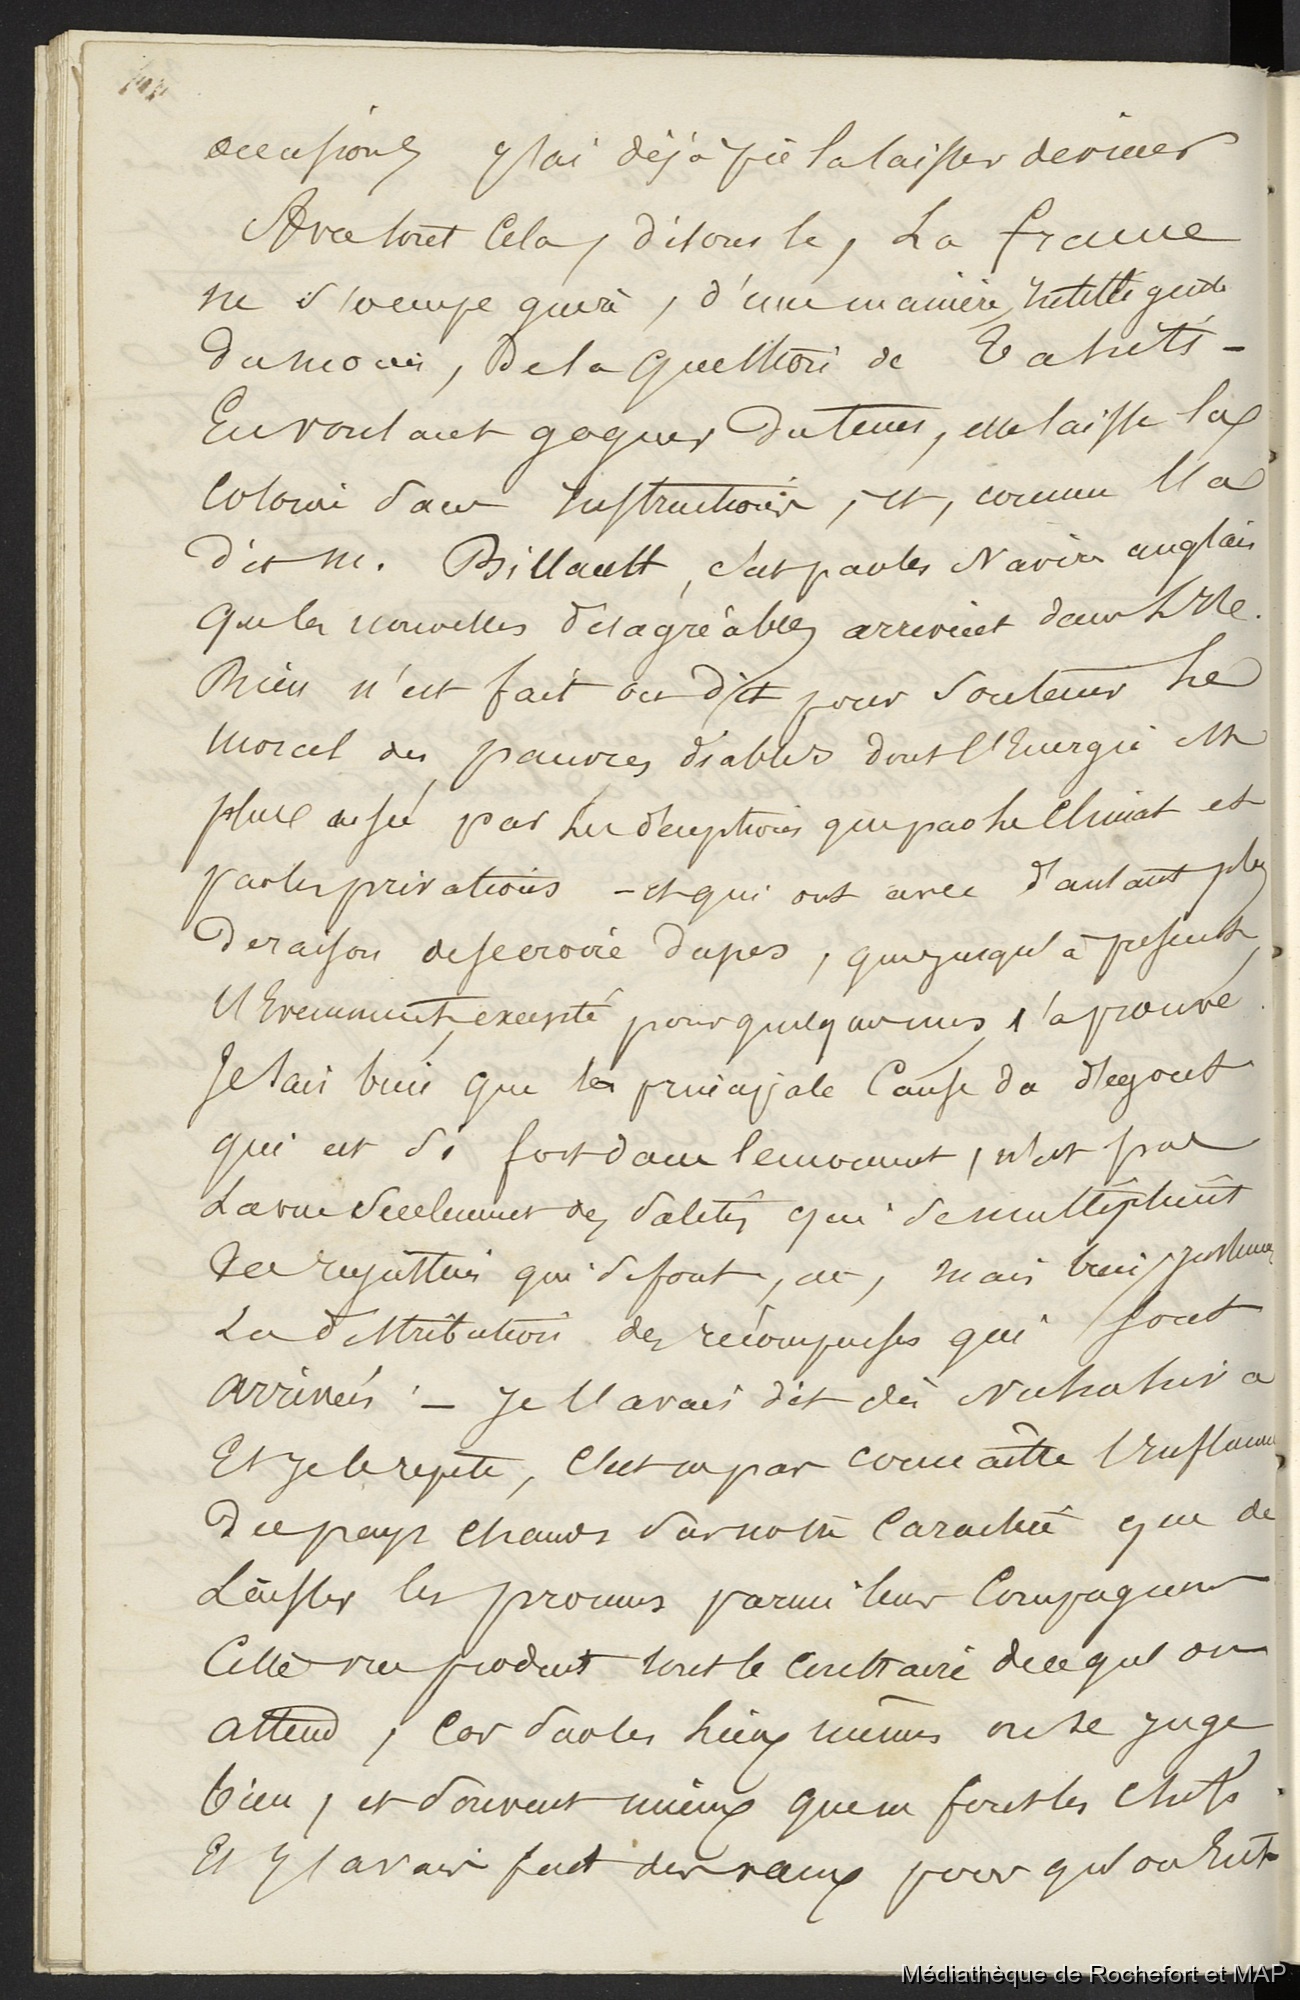 occasions j'ai déjà pu la laisser deviner
Avec tout cela, disons le, La france
ne s'occupe guère, d'une manière intelligente
du moins, de la question de Tahiti –
En voulant gagner du tems, elle laisse la
colonie sans instructions, et, comme l'a
dit M. Billault, c'est par les Navires anglais
que les nouvelles désagréables arrivent dans L'île.
Rien n'est fait ou dit pour soutenir Le
moral des pauvres diables dont l'Energie est
plus usée par les déceptions que par le Climat et
par les privations – et qui ont avec d'autant plus
de raison de se croire dupes, que jusqu'à présent
l'Evenement, excepté pour quelques uns, l'a prouvé.
Je sais bien que la principale Cause du dégout
qui est si fort dans le moment, n'est pas
La vue seulement des saletés qui se multiplient
des injustices qui se font, etc, mais bien justement
La distribution des récompenses qui sont
arrivées. – Je l'avais dit dès Nukuhiva
Et je le repète, C'est ne pas connaitre l'influence
Des pays chauds sur notre Caractère que de
Laisser les promus parmi leurs Compagnons
Cette vue produit tout le Contraire de ce qu'on
attend, Car sur les lieux mêmes on se juge
bien, et souvent mieux que ne font les chefs
Et j'avais fait des vœux pour qu'on Eut
Médiathèque de Rochefort et MAP